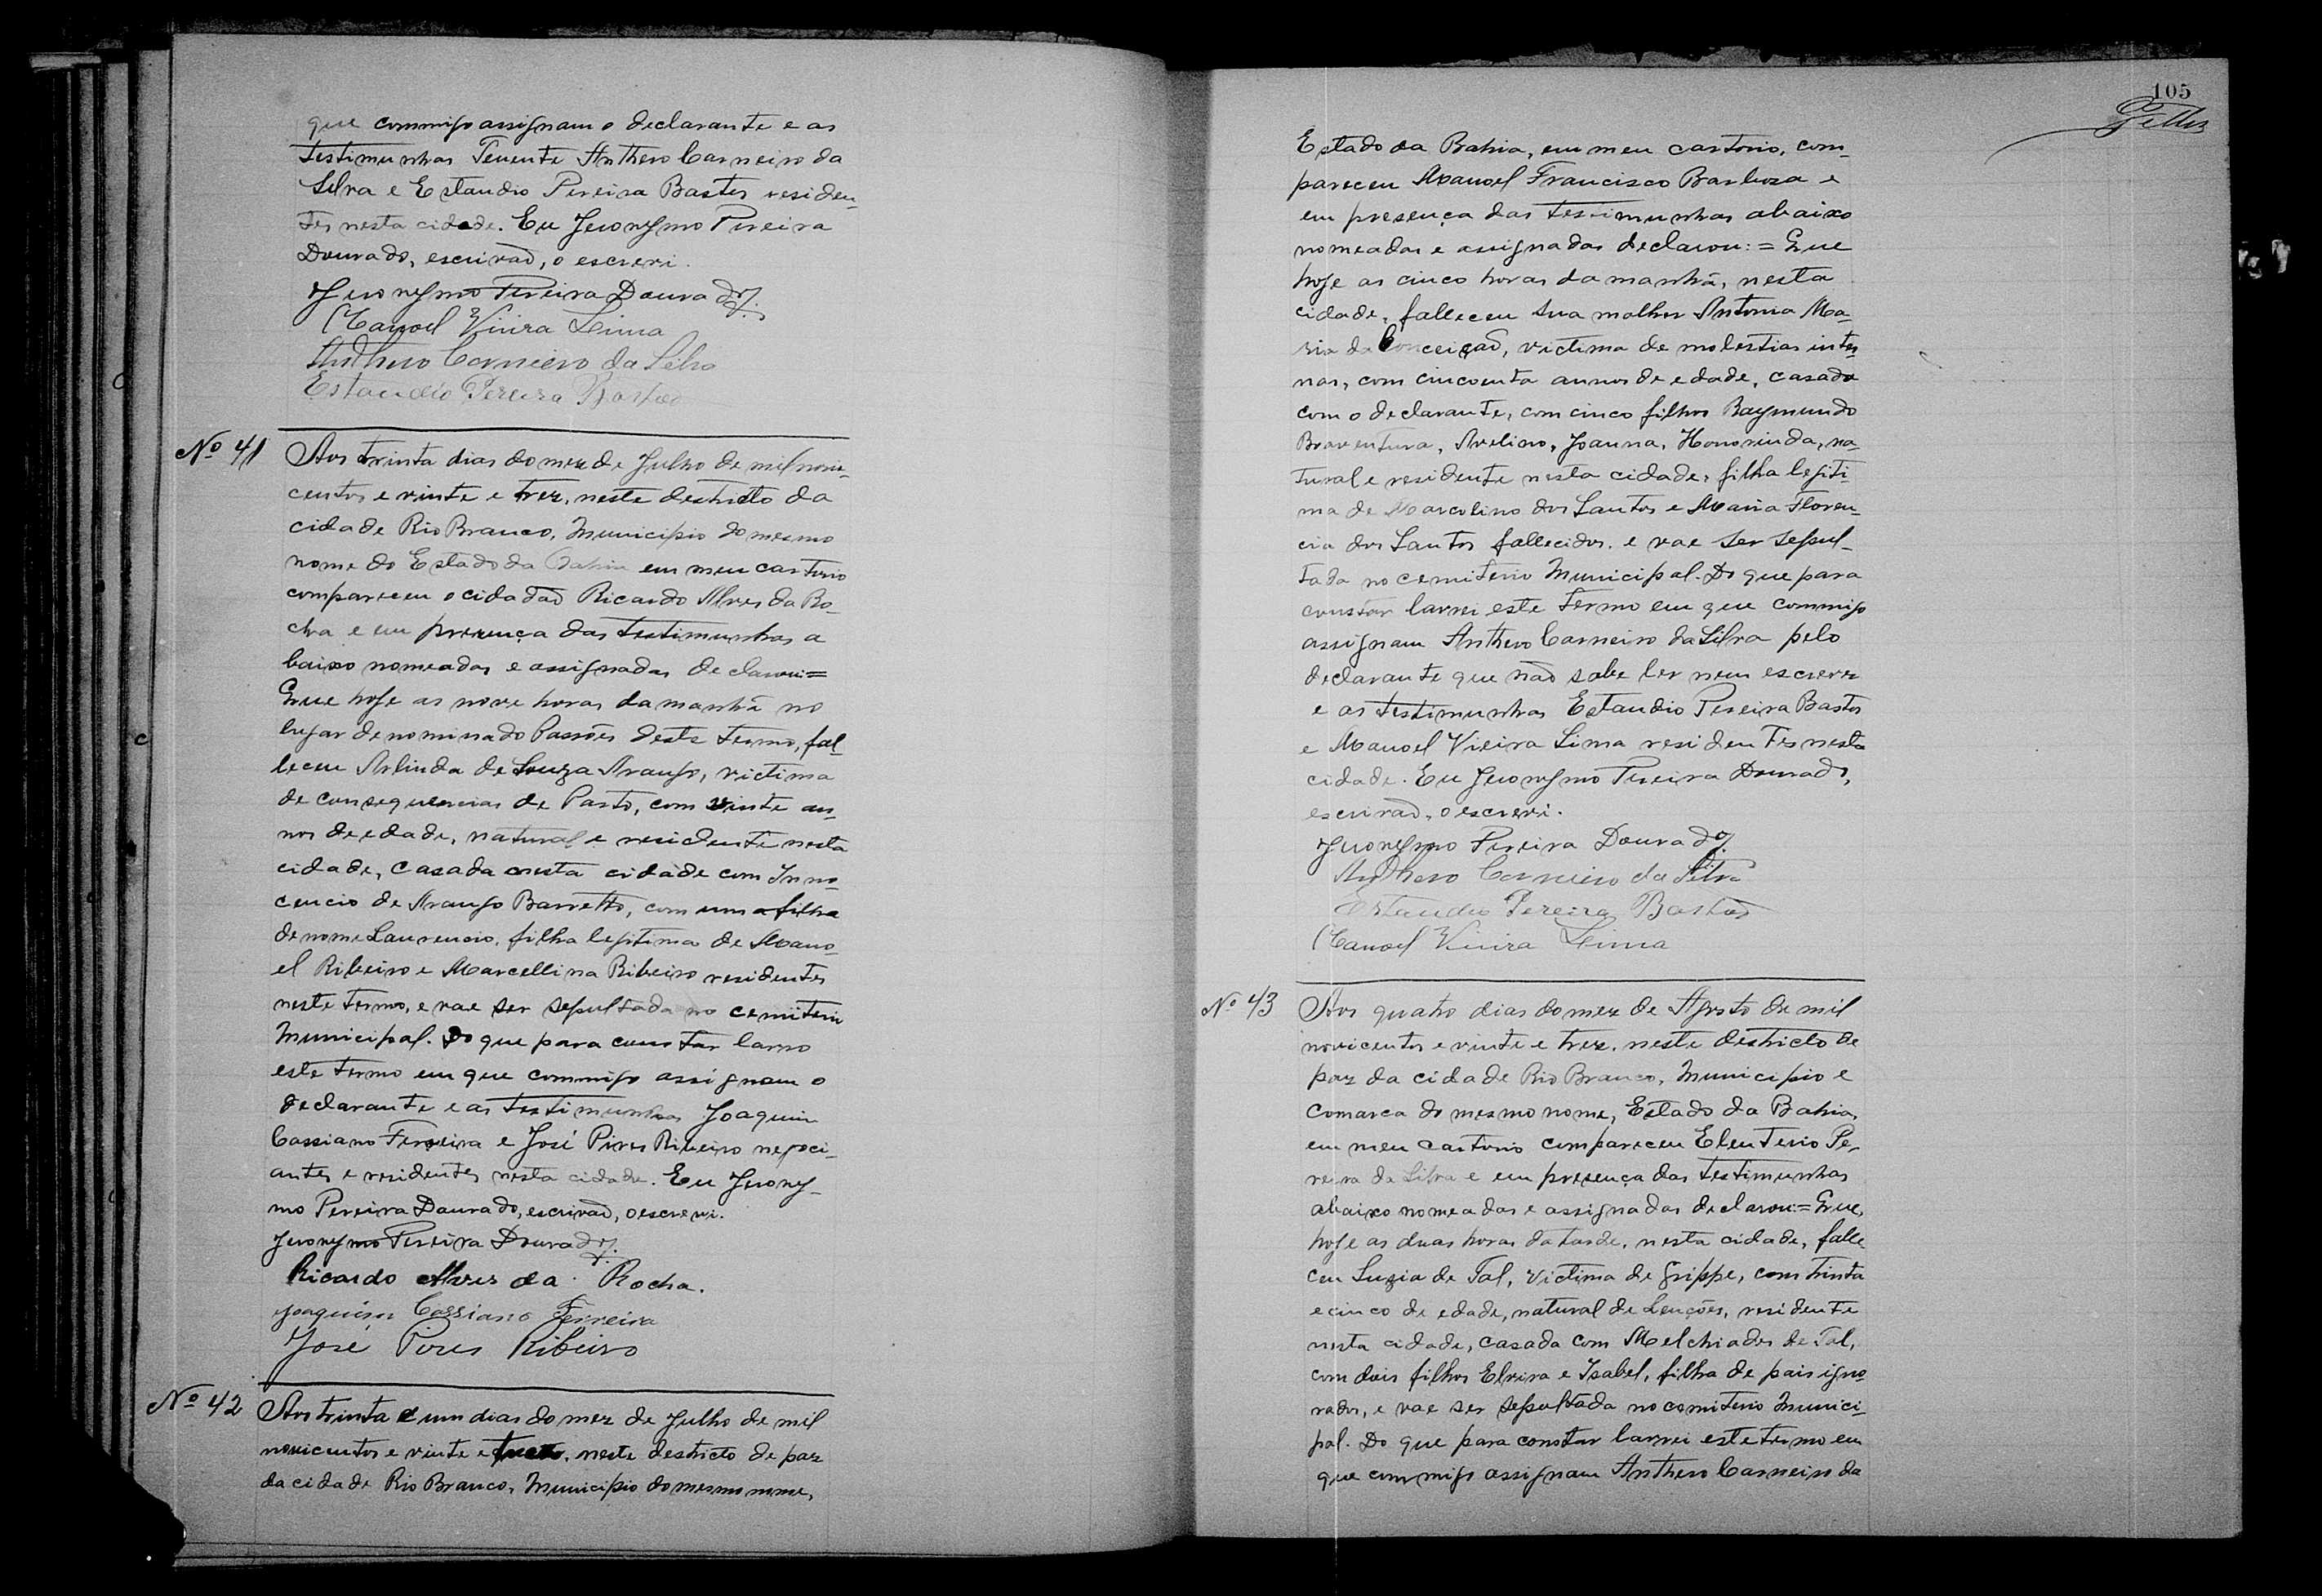 que commigo assignam o declarante e as
testimunhas Tenente Anthero Carneiro da
Silva e Estaudio Pereira Bastos residen-
tes nesta cidade. Eu Jeronymo Pereira
Dourado, escrivaõ, o escrevi.
Jeronymo Pereira Dourado
Manoel Vieira Lima
Anthero Carneiro da Silva
Estaudio Pereira Bastos
Nº 41
Aos trinta dias do mez de Julho de mil novi-
centos e vinte e trez, neste destricto da
cidade Rio Branco, Municipio do mesmo
nome do Estado da Bahia em meu cartorio
compareceu o cidadaõ Ricardo Alves da Ro-
cha e em presença das testimunhas a
baixo nomeadas e assignadas declarou:=
Que hoje as nove horas da manhã no
lugar denominado Passões deste termo, fal-
leceu Arlinda de Souza Araujo, victima
de consequencias de Parto, com vinte an-
nos de edade, natural e residente nesta
cidade, casada nesta cidade com Inno-
cencio de Araujo Barretto, com um a filha
de nome Laurencio, filha legitima de Mano-
el Ribeiro e Marcellina Ribeiro residentes
neste termo, e vae ser sepultada no cemiterio
Municipal. Do que para constar lavro
este termo em que commigo assignam o
declarante e as testimunhas Joaquim
Cassiano Ferreira e José Pires Ribeiro negoci-
antes e residentes nesta cidade. Eu Jerony-
mo Pereira Dourado, escrivaõ, o escrevi.
Jeronymo Pereira Dourado
Ricardo Alves da Rocha.
Joaquim Cassiano Ferreira
José Pires Ribeiro
Nº 42
Aos trinta e um dias do mez de Julho de mil
novicentos e vinte e trez, neste destricto de paz
da cidade Rio Branco, Municipio do mesmo nome,
105
Estado da Bahia, em meu cartorio, com-
pareceu Manoel Francisco Barboza e
em presença das testimunhas abaixo
nomeadas e assignadas declarou:= Que
hoje as cinco horas da manhã, nesta
cidade, falleceu sua molher Antonia Ma-
ria da Conceiçaõ, victima de molestias inter-
nas, com cincoenta annos de edade, casada
com o declarante, com cinco filhos Raymundo
Boaventura, Avelino, Joanna, Honorinda, na-
tural e residente nesta cidade, filha legiti-
ma de Marcolino dos Santos e Maria Floren-
cia dos Santos fallecidos. e vae ser sepul-
tada no cemiterio Municipal. Do que para
constar lavrei este termo em que commigo
assignam Anthero Carneiro da Silva pelo
declarante que naõ sabe ler nem escrever
e as testimunhas Estaudio Pereira Bastos
e Manoel Vieira Lima residentes nesta
cidade. Eu Jeronymo Pereira Dourado,
escrivaõ, o escrevi.
Jeronymo Pereira Dourado
Anthero Carneiro da Silva
Estaudio Pereira Bastos
Manoel Vieira Lima
Nº 43
Aos quatro dias do mez de Agosto de mil
novicentos e vinte e trez, neste destricto de
paz da cidade Rio Branco, Municipio e
Comarca do mesmo nome, Estado da Bahia,
em meu cartorio compareceu Eleuterio Pe-
reira da Silva e em presença das testimunhas
abaixo nomeadas e assignadas declarou:= Que,
hoje as duas horas da tarde, nesta cidade, falle
ceu Luzia de Tal, victima de grippe, com trinta
e cinco de edade, natural de Lençóes, residente
nesta cidade, casada com Melchiades de Tal,
com dois filhos Elvira e Isabel, filha de pais igno-
rados, e vae ser sepultada no comiterio Munici-
pal. Do que para constar lavrei este termo em
que commigo assignam Anthero Carneiro da